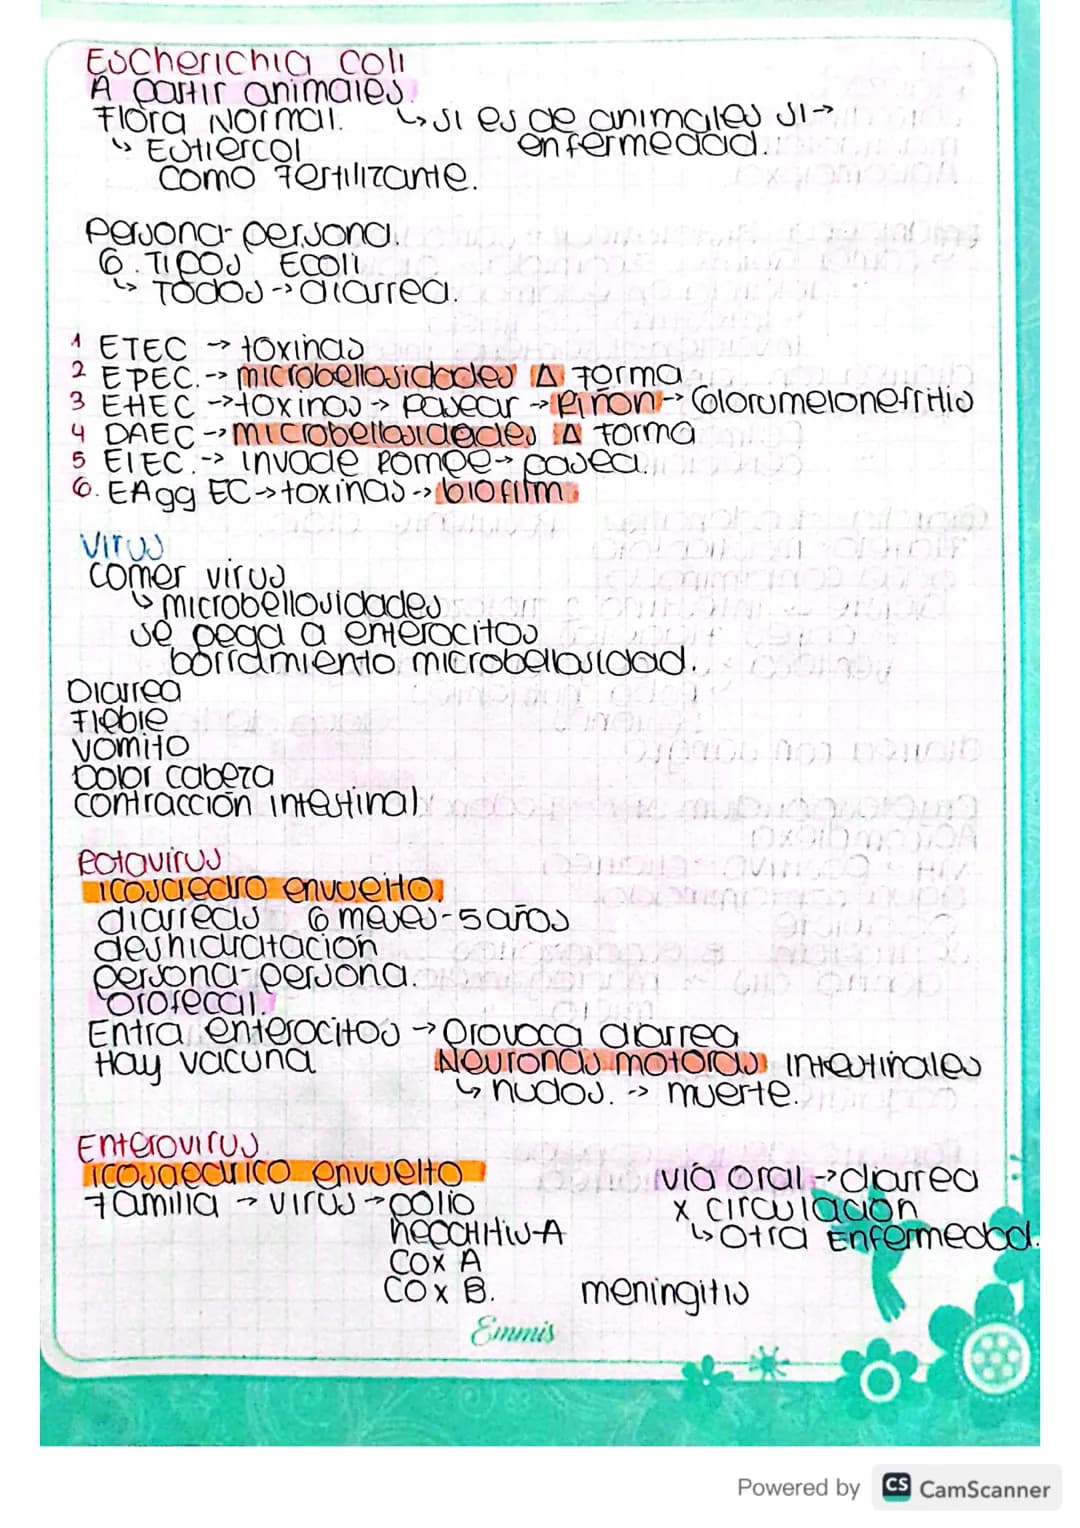 Escherichia coli
A partir animales.
Flora Normal. ↳ si es de animales si →
↳ Estiercol enfermedad.
como fertilizante.
Persona-persona.
6. Tipos Ecoli
↳ Todos -> diarrea.
1 ETEC → toxinas
2 EPEC. -> microbellosidades Δ forma
3 EHEC -> toxinas -> pasear -> Riñon -> Glorumelonefritio
4 DAEC -> microbellosidades Δ forma
5 EIEC. -> invade rompe -> pasea.
6. EAgg EC -> toxinas -> biofilm
Virus
comer virus
↳ microbellosidades
se pega a enterocitos
borramiento microbellosidad.
Diarrea
Fiebie
vomito
Dolor cabeza
contracción intestinal
Rotavirus
icosaedro envuelto.
diarreas 6 meses-5 años
deshidratación
persona-persona.
orofecal.
Entra enterocitos → Provoca diarrea
Hay vacuna Neuronas motoras intestinales
↳ nudos. -> muerte.
Enterovirus
icosaedrico envuelto vía oral -> diarrea
familia → virus → polio x circulación
hepatitis-A ↳ otra Enfermedad.
Cox A
Cox B. meningitis
Emmis
Powered by CS CamScanner